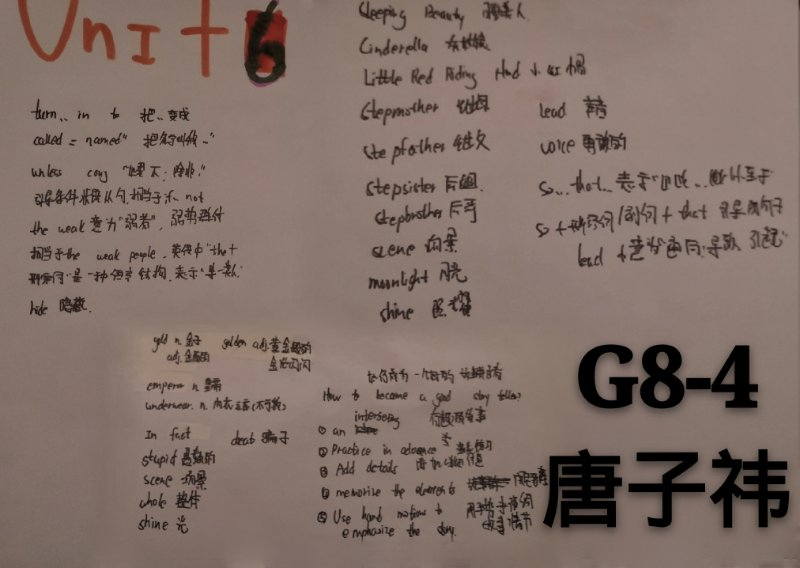 Unit 6
turn.. in to 把..变成
called = named "把..叫做.."
unless conj "如果不;除非."
引导条件状语从句,相当于if.. not
the weak 意为"弱者",弱势群体
相当于 the weak people, 英语中 "the +
形容词"是一种 结构,表示"某一类"
hide 隐藏.
Sleeping Beauty 睡美人
Cinderella 灰姑娘
Little Red Riding Hood 小红帽
Stepmother 继母
stepfather 继父
stepsister
stepbrother
scene 场景
moonlight 月光
shine 照耀
lead
voice
so...that... 表示"如此...所以..至于
so + 形容词/副词 + that 引导 句子
lead 意为
gold n. 金子 golden adj. 黄金般的
adj. 金色的 金光闪闪
emperor n. 皇帝
underwear. n. 内衣
In fact
stupid 愚蠢的
scene 场景
whole 整体
shine 光
如何成为一个好的
How to become a good story teller
① an interesting 有趣的故事
② Practice in advance
③ Add details
④ memorize the
⑤ Use hand motions to
emphasize the story.
G8-4
唐子祎